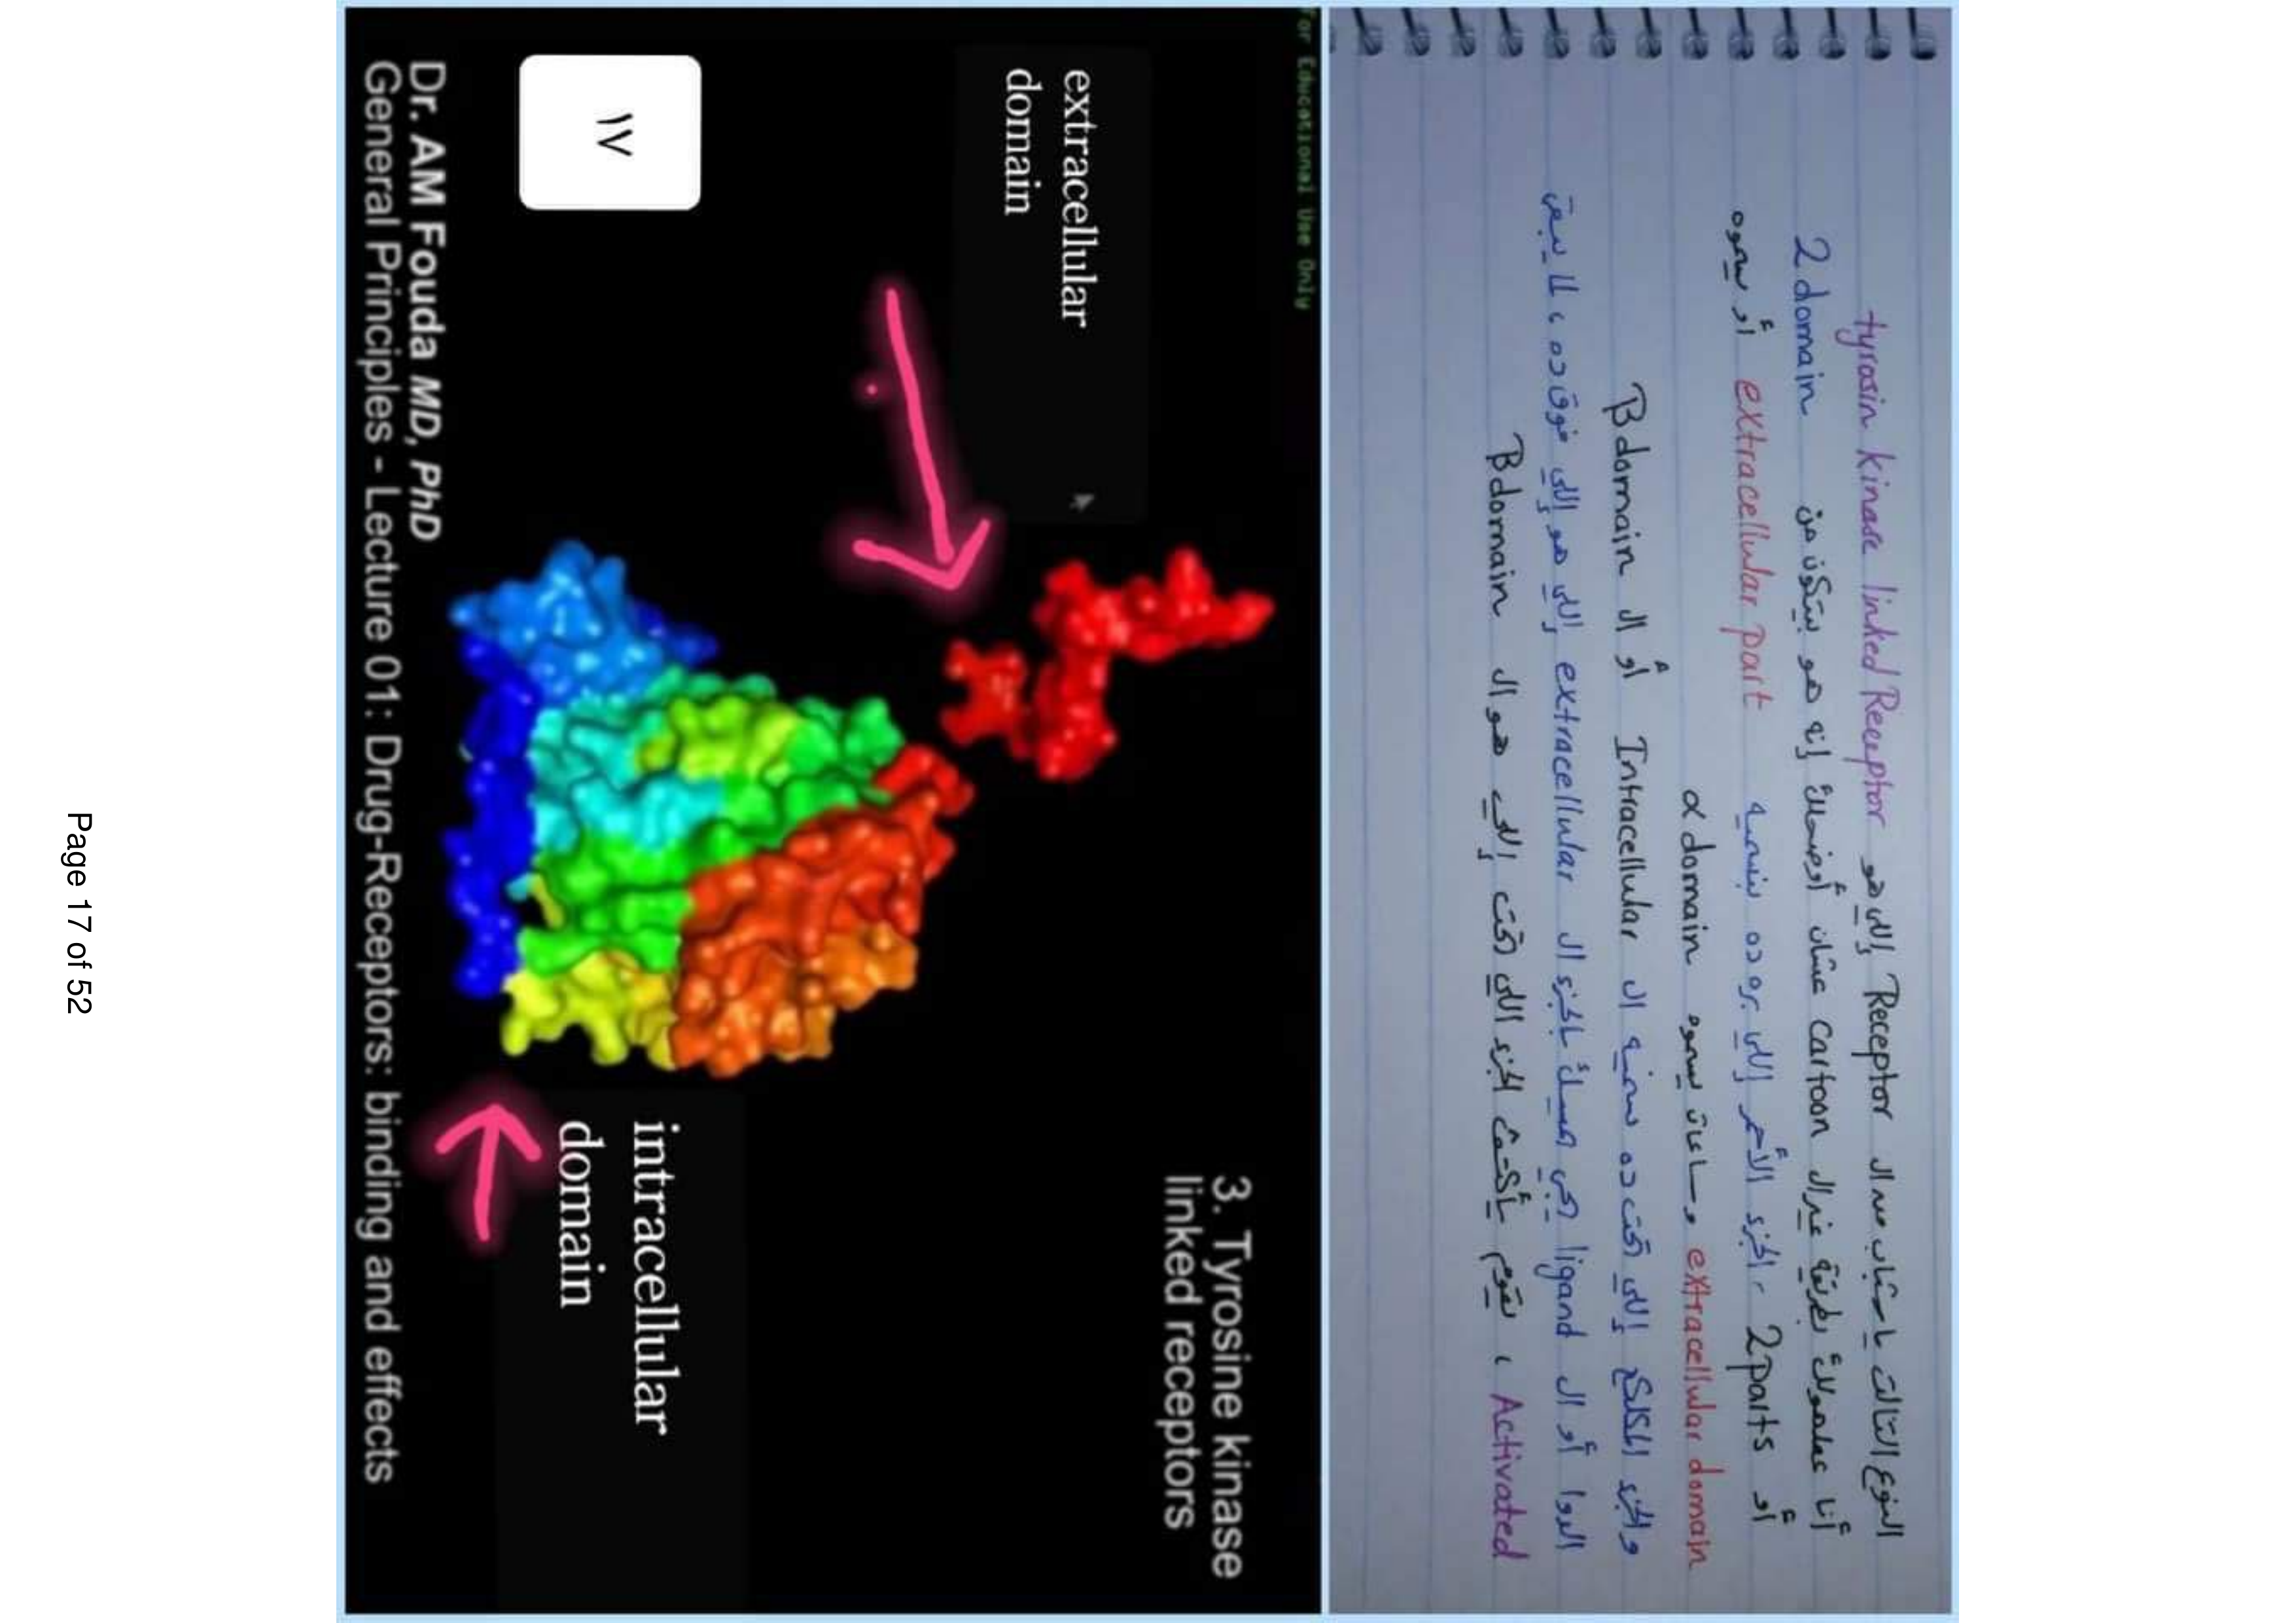 النوع التالت يا شباب من ال Receptor إللى هو tyrosin kinase linked Receptor
أنا عاملهولك بطريقة غير ال cartoon عشان أوضحلك إنه هو بيتكون من 2 domain
أو 2 parts ، الجزء الأحمر إللى بره ده بنسميه extracellular part أو يسموه
extracellular domain وساعات يسموه α domain
والجزء المكلكع إللى تحت ده سميه ال Intracellular أو ال B domain
الدوا أو ال ligand يجى يمسك بالجزء ال extracellular إللى هو إللى فوق ده ، لما يبقى
Activated ، يقوم الجزء اللى تحت إللى هو ال B domain
For Educational Use Only
3. Tyrosine kinase
linked receptors
extracellular
domain
intracellular
domain
١٧
Dr. AM Fouda MD, PhD
General Principles - Lecture 01: Drug-Receptors: binding and effects
Page 17 of 52